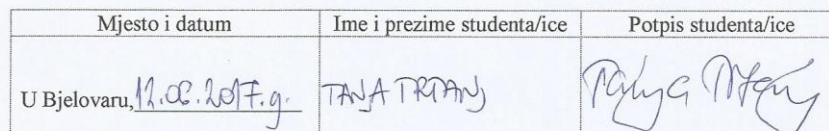 Mjesto i datum
Ime i prezime studenta/ice
Potpis studenta/ice
U Bjelovaru, 12.06.2017.g.
TANJA TRTANJ
Tanja Trtanj